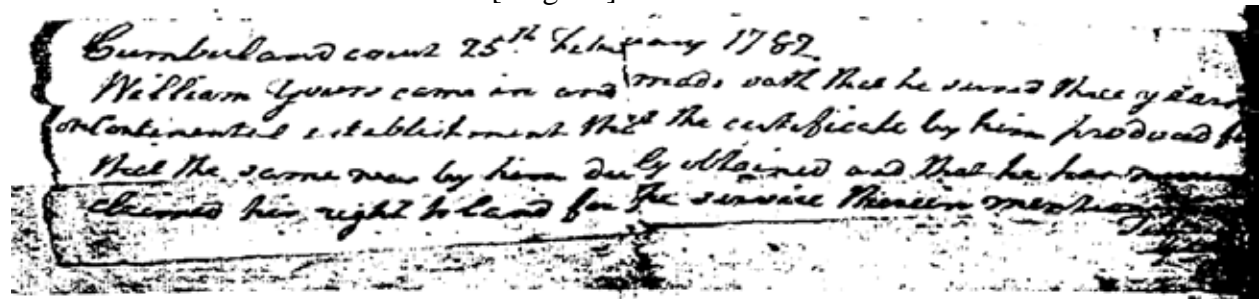 Cumberland court 25th February 1782.
William Gowers came in and made oath that he served three years
on Continental establishment that the certificate by him produced
that the same was by him duly obtained and that he has never
claimed his right to land for the service therein mention